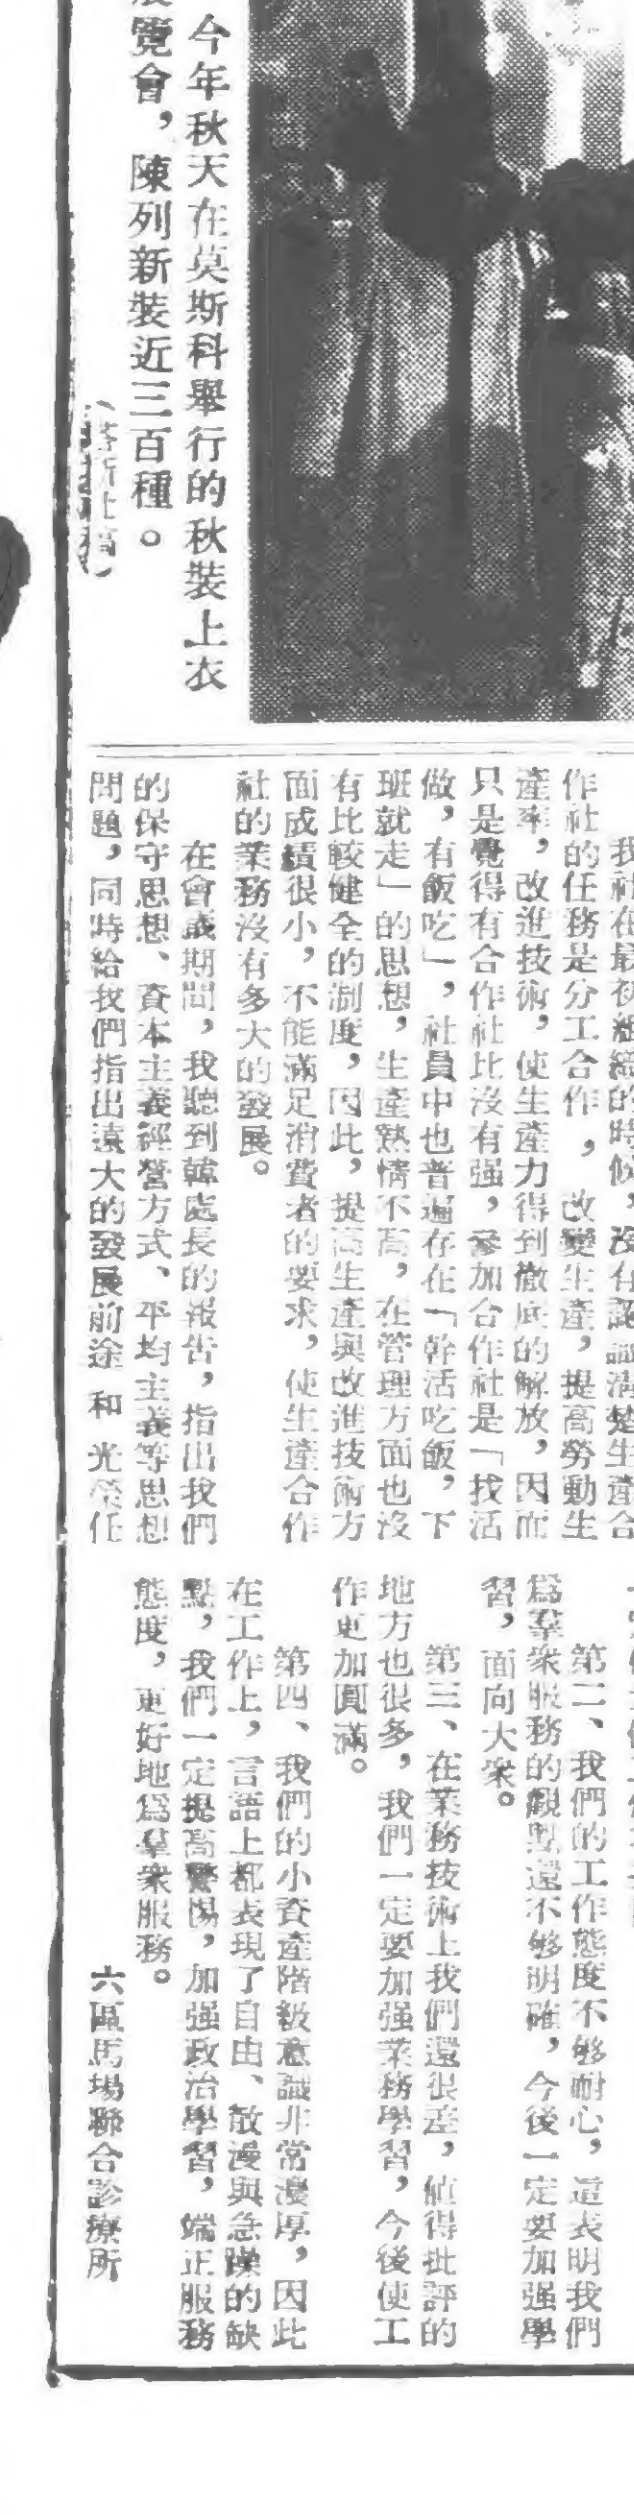 今年秋天在莫斯科舉行的秋裝上衣
展覽會，陳列新裝近三百種。
（塔斯社稿）
我社在最初組織的時候，沒有認識清楚生產合
作社的任務是分工合作，改變生產，提高勞動生
產率，改進技術，使生產力得到徹底的解放，因而
只是覺得有合作社比沒有强，參加合作社是「找活
做，有飯吃」，社員中也普遍存在「幹活吃飯，下
班就走」的思想，生產熱情不高，在管理方面也沒
有比較健全的制度，因此，提高生產與改進技術方
面成績很小，不能滿足消費者的要求，使生產合作
社的業務沒有多大的發展。
在會議期間，我聽到韓處長的報告，指出我們
的保守思想、資本主義經營方式、平均主義等思想
問題，同時給我們指出遠大的發展前途和光榮任
第二、我們的工作態度不够耐心，這表明我們
爲羣衆服務的觀點還不够明確，今後一定要加强學
習，面向大衆。
第三、在業務技術上我們還很差，値得批評的
地方也很多，我們一定要加强業務學習，今後使工
作更加圓滿。
第四、我們的小資產階級意識非常濃厚，因此
在工作上，言語上都表現了自由、散漫與急躁的缺
點，我們一定提高警惕，加强政治學習，端正服務
態度，更好地爲羣衆服務。
六區馬場聯合診療所